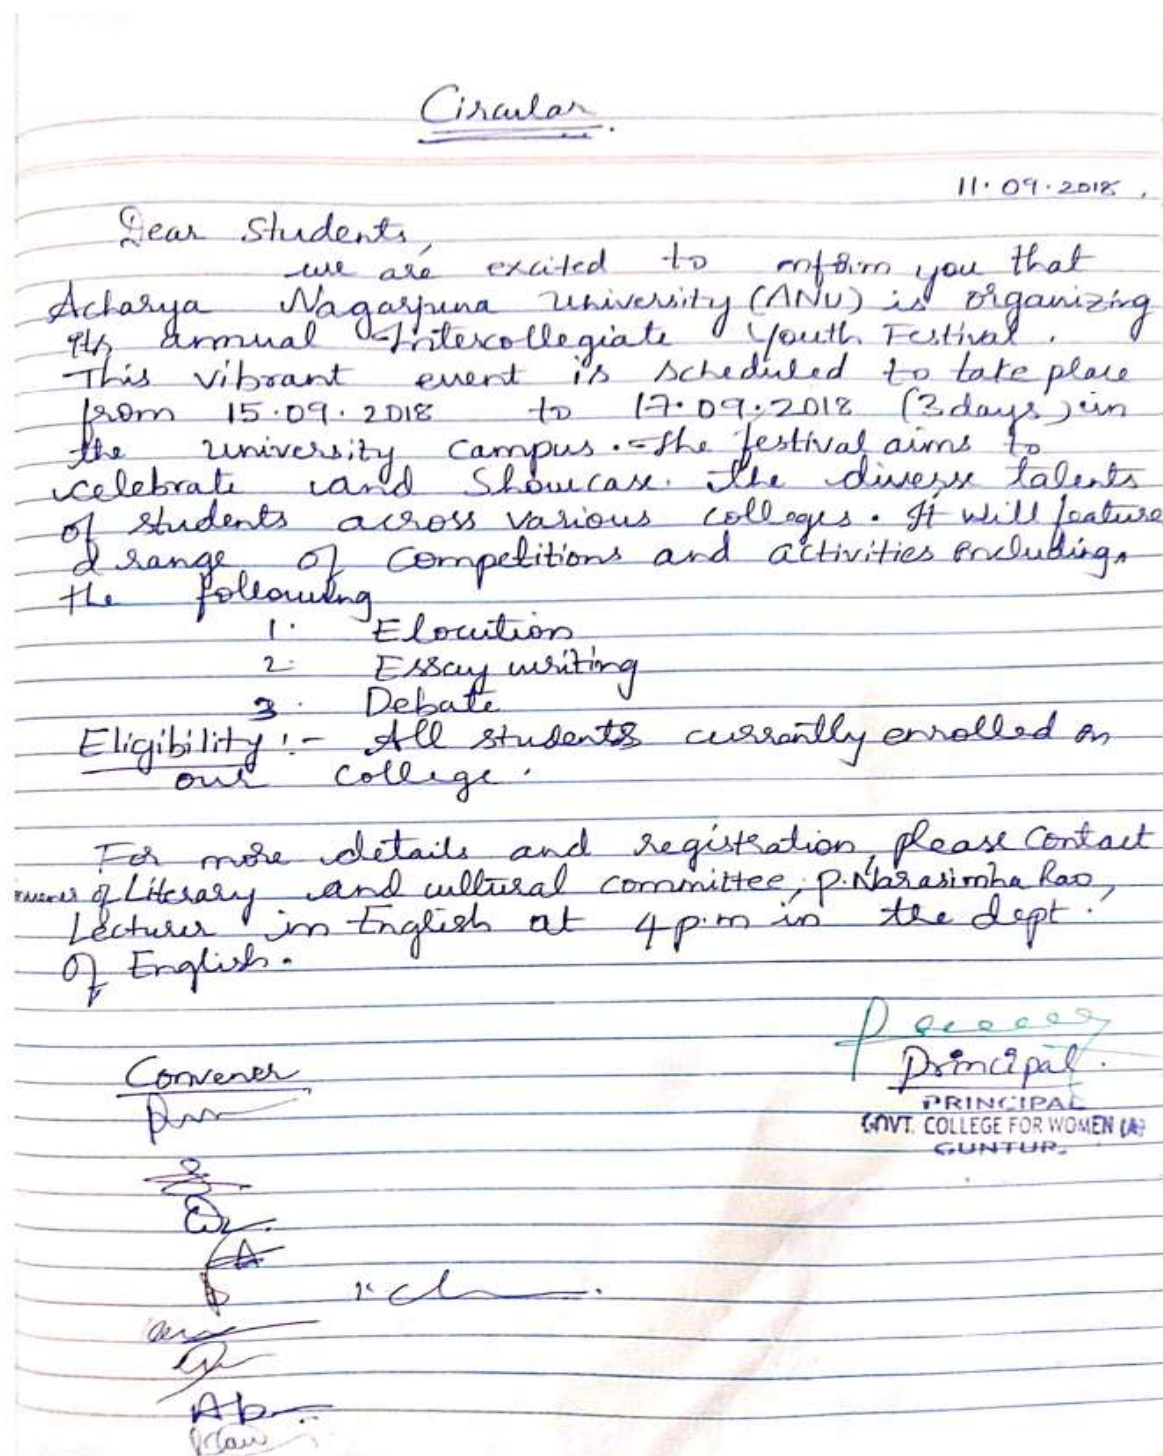 Circular
11.09.2018.
Dear Students,
we are excited to inform you that
Acharya Nagarjuna University (ANU) is organizing
its annual Intercollegiate Youth Festival.
This vibrant event is scheduled to take place
from 15.09.2018 to 17.09.2018 (3 days) in
the University Campus. The festival aims to
celebrate and Showcase the diverse talents
of students across various colleges. It will feature
a range of Competitions and activities including
the following
1. Elocution
2. Essay writing
3. Debate
Eligibility :- All students currently enrolled in
our college.
For more details and registration, please Contact
of Literary and cultural committee, P. Narasimha Rao,
Lecturer in English at 4 p.m in the dept.
of English.
Principal.
Convener
PRINCIPAL
GOVT. COLLEGE FOR WOMEN (A)
GUNTUR.